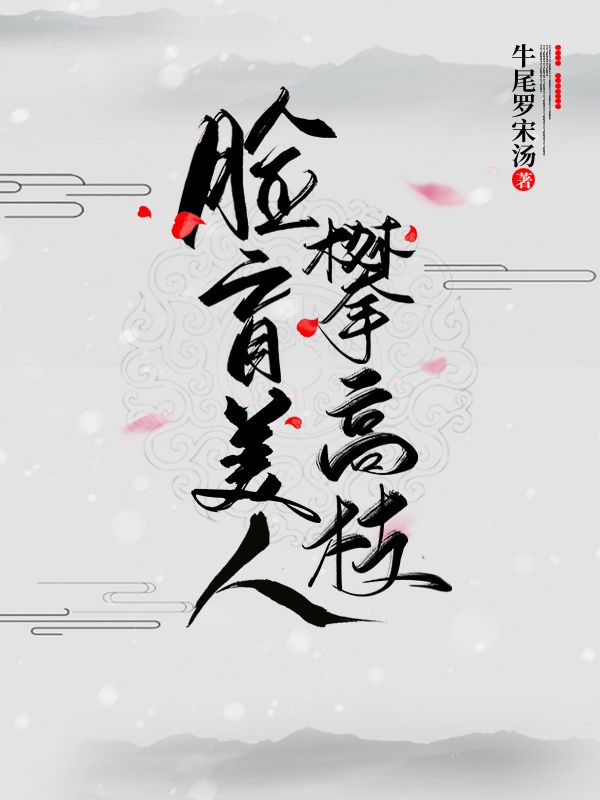 脸盲美人
攀高枝
牛尾罗宋汤 著